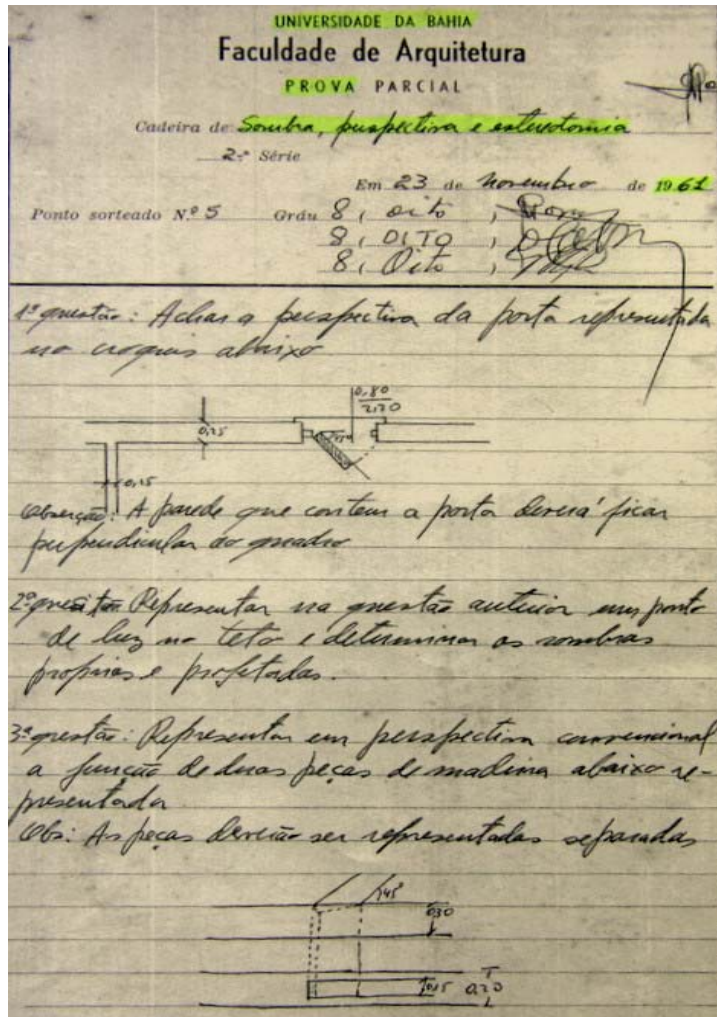 UNIVERSIDADE DA BAHIA
Faculdade de Arquitetura
PROVA PARCIAL
Cadeira de Sombra, perspectiva e estereotomia
2ª Série
Em 23 de Novembro de 1961
Ponto sorteado N.º 5 Gráu 8, oito,
8, OITO,
8, Oito,
1ª questão: Achar a perspectiva da porta representada
no croquis abaixo
0,80
2,20
0,25
45º
0,15
Observação: A parede que contem a porta deverá ficar
perpendicular ao quadro
2ª questão: Representar na questão anterior um ponto
de luz no teto e determinar as sombras
proprias e projetadas.
3ª questão: Representar em perspectiva convencional
a junção de duas peças de madeira abaixo re-
presentada
Obs: As peças deverão ser representadas separadas
45º
030
0,15 0,20